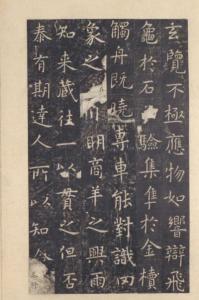 玄覽不極應物如響辯飛
龜於石驗集隼於金櫝
觸舟既曉專車能對識罔
象之川明商羊之興雨
知來藏往一以貫之但否
泰有期達人所以知